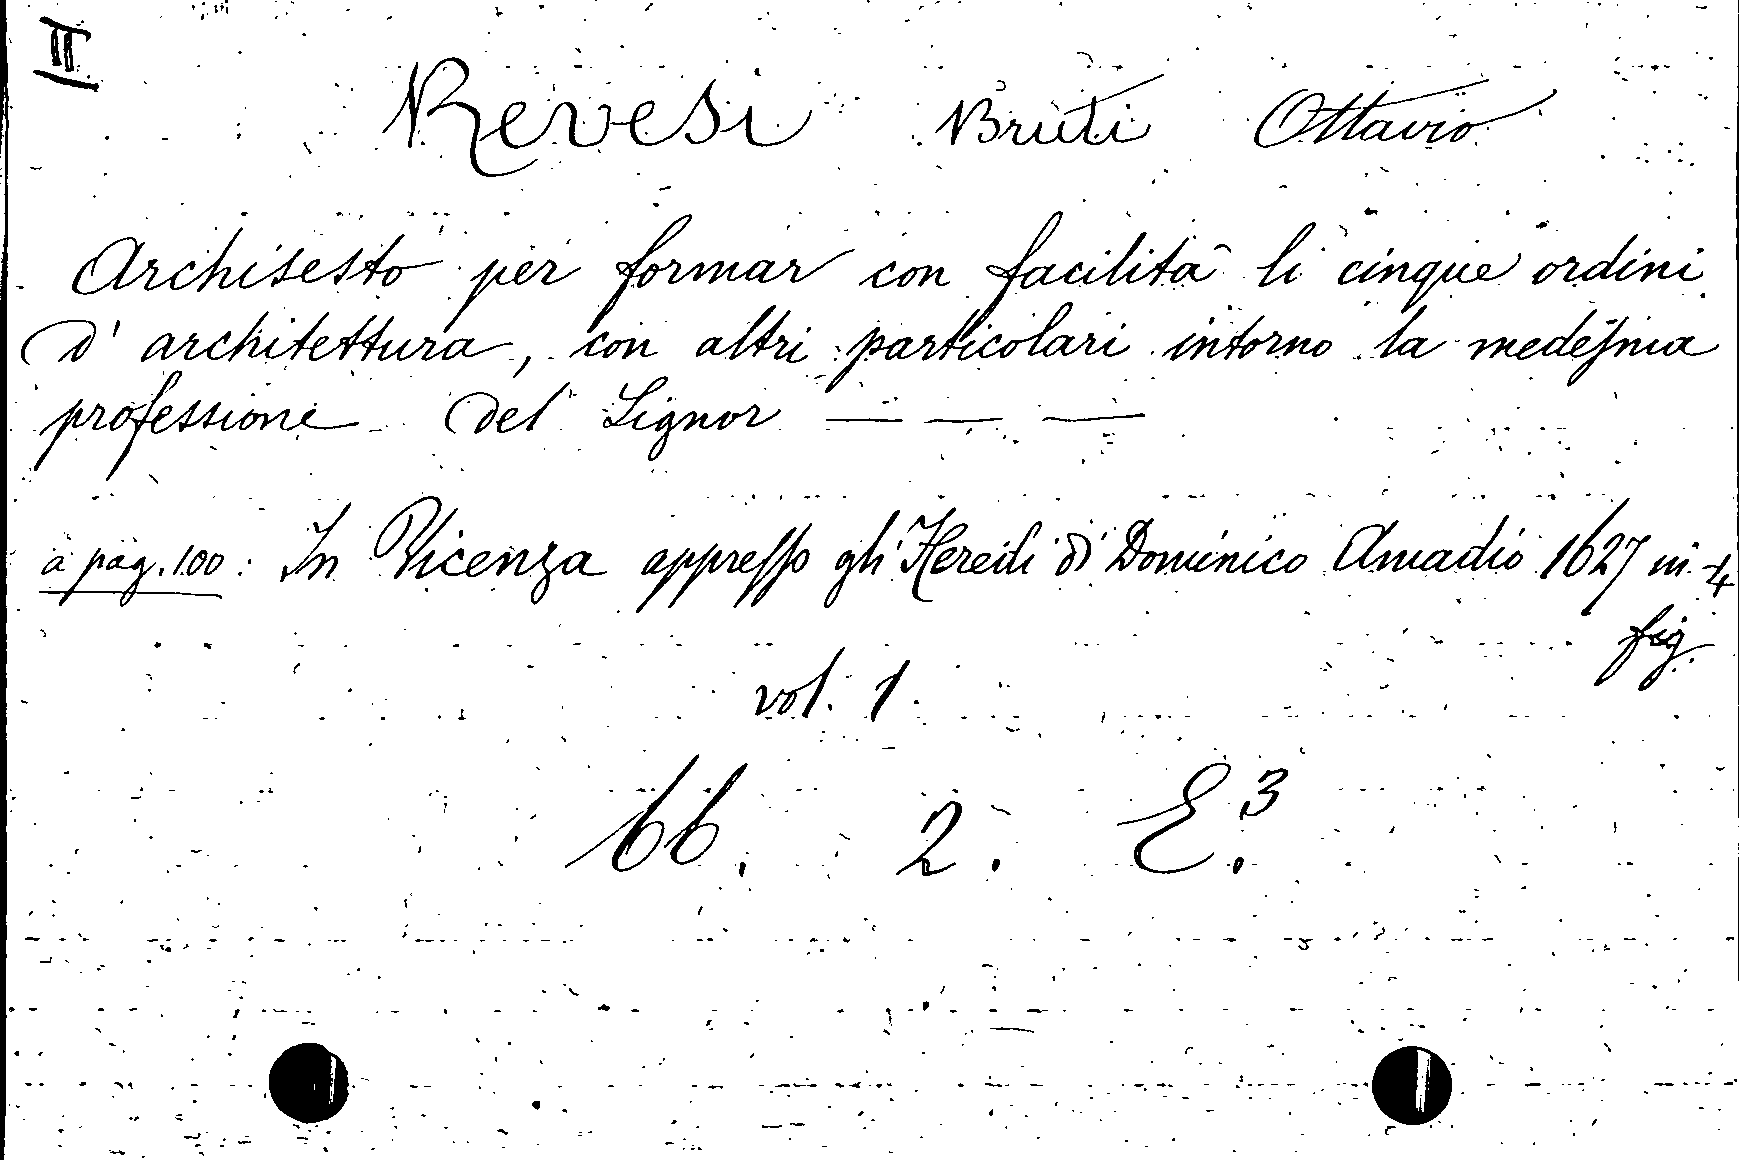 II
Revesi Bruti Ottavio
Archisesto per formar con facilità li cinque ordini
d' architettura, con altri particolari intorno la medesma
professione del Signor — — —
à pag. 100: In Vicenza appresso gli Heredi di Dominico Amadio 1627 in-4
fig.
vol. 1
66. 2. E.3